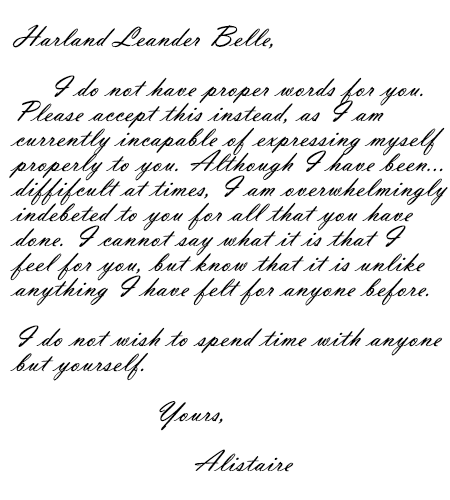 Harland Leander Belle,
I do not have proper words for you.
Please accept this instead, as I am
currently incapable of expressing myself
properly to you. Although I have been...
diffifcult at times, I am overwhelmingly
indebeted to you for all that you have
done. I cannot say what it is that I
feel for you, but know that it is unlike
anything I have felt for anyone before.
I do not wish to spend time with anyone
but yourself.
Yours,
Alistaire